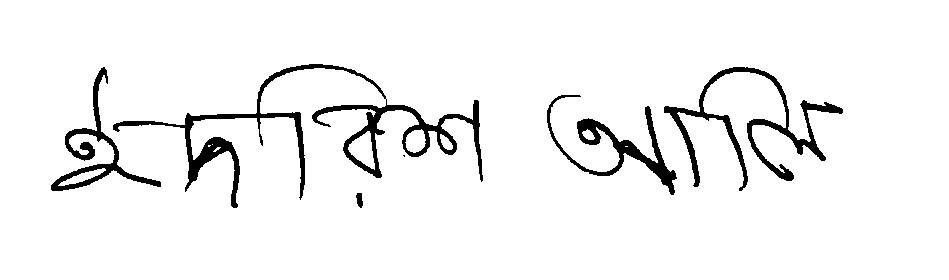 ইদারিশ আলি